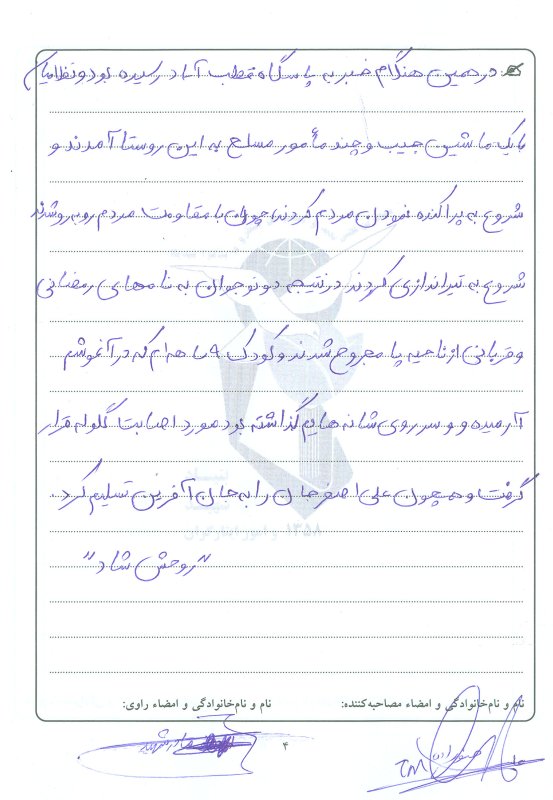 در همین هنگام خبر به پاسگاه قطب آباد رسیده بود و نظامیان
با یک ماشین جیب و چند مأمور مسلح به این روستا آمدند و
شروع به پراکنده نمودن مردم کردند، چون با مقاومت مردم روبه رو شدند
شروع به تیراندازی کردند در نتیجه دو نوجوان به نامهای رمضانی
و قربانی از ناحیه پا مجروح شدند و کودک ۹ ماهه ام که در آغوشم
آرمیده و و سر روی شانه هایم گذاشته بود مورد اصابت گلوله قرار
گرفت و همچون علی اصغر جان را به جان آفرین تسلیم کرد.
"روحش شاد"
نام و نام‌خانوادگی و امضاء مصاحبه‌کننده:
نام و نام‌خانوادگی و امضاء راوی:
مادر شهید
۴